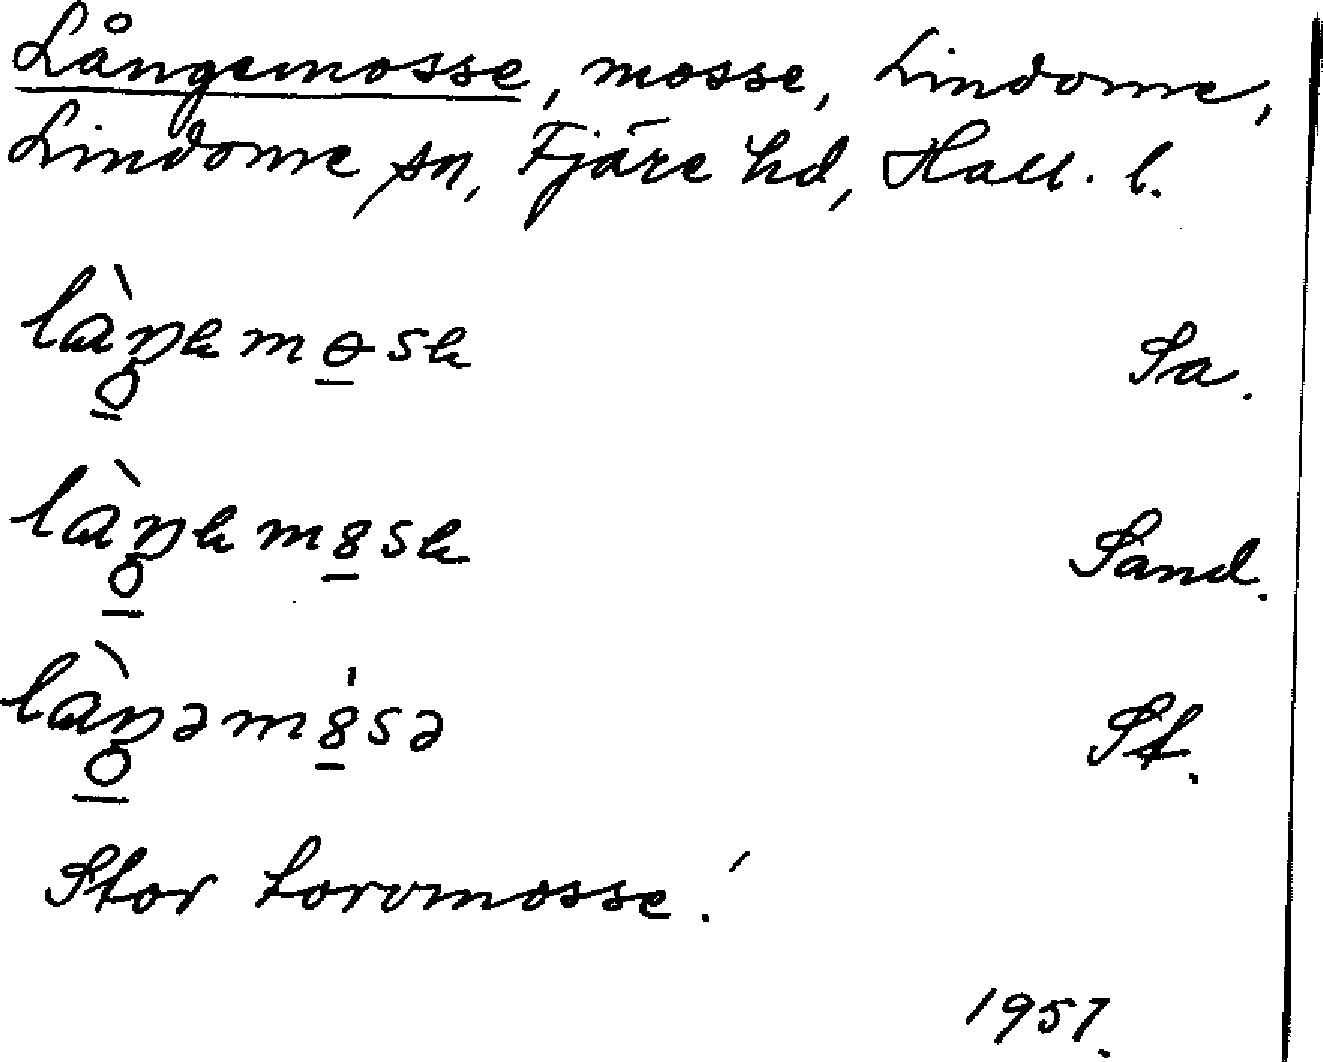 Långemosse, mosse, Lindome,
Lindome sn, Fjäre hd, Hall. l.
Sa.
Sand.
làŋəmȯsə St.
Stor torvmosse.
1957.